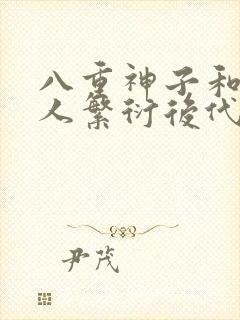 八重神子和
人繁衍後代
尹茂